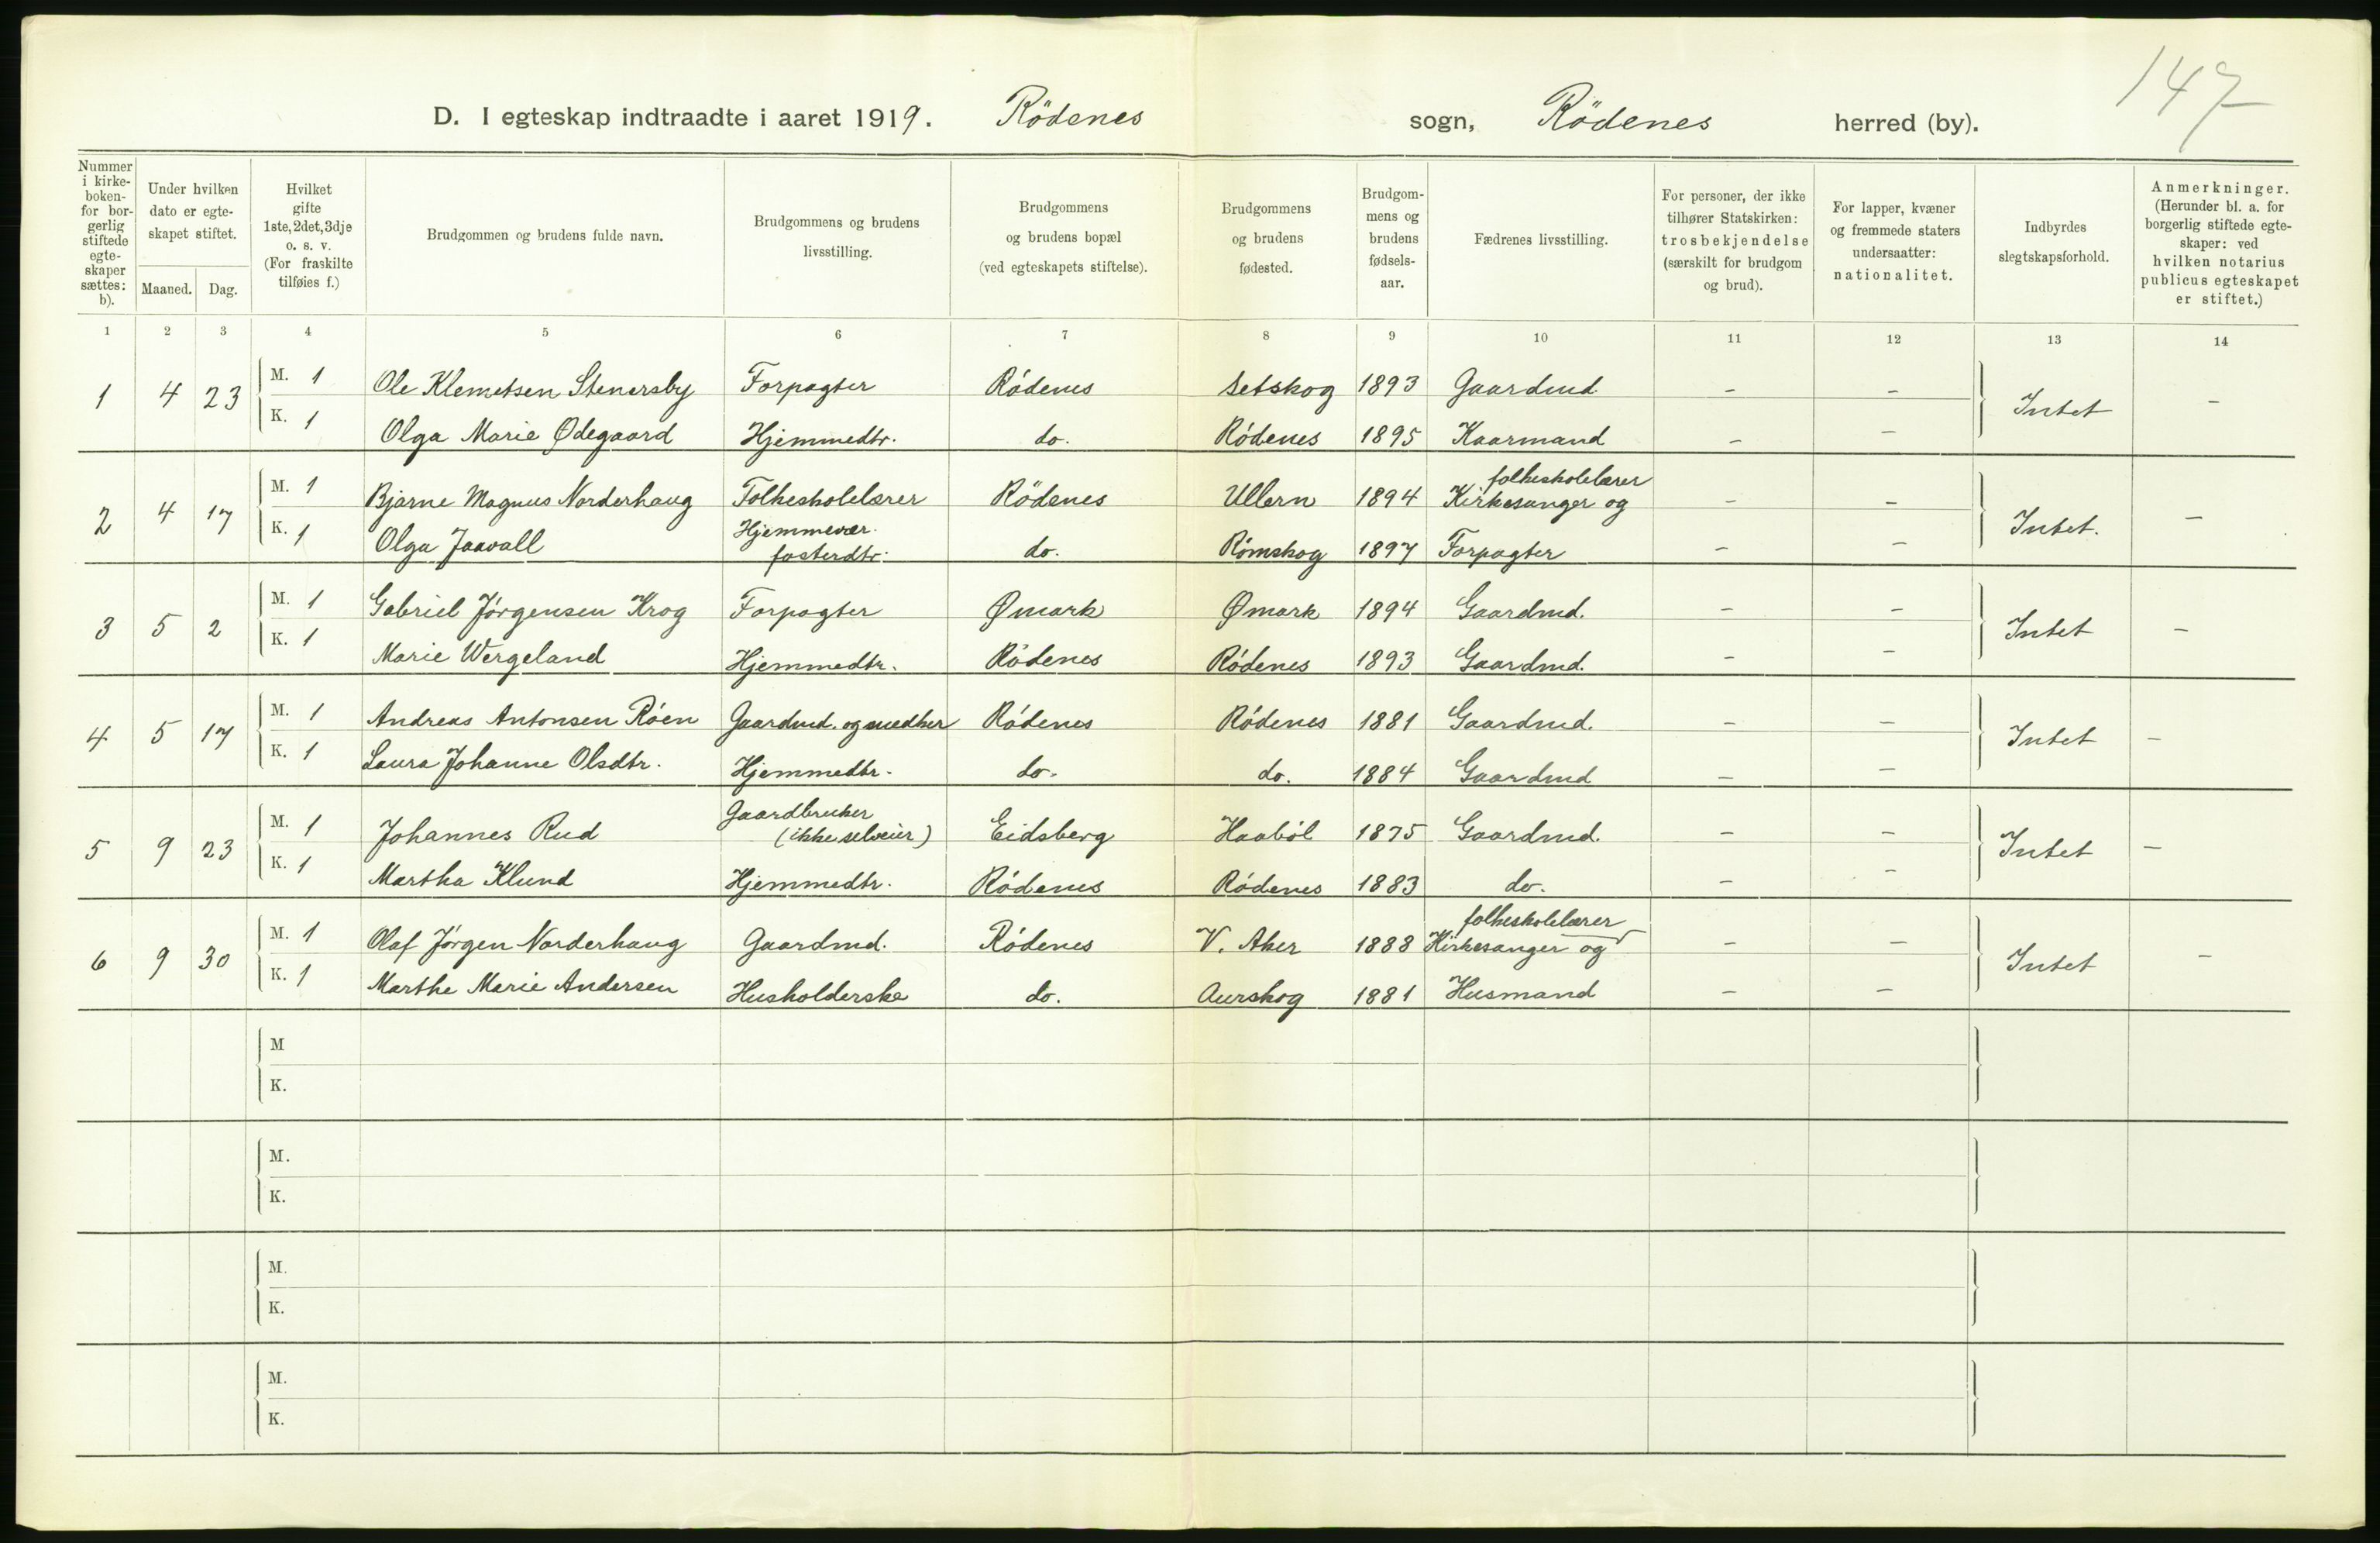 147
D. I egteskap indtraadte i aaret 1919. Rödenes sogn, Rödenes herred (by).
Nummer i kirkeboken- for borgerlig stiftede egteskaper sættes: b).
Under hvilken dato er egteskapet stiftet.
Maaned. Dag.
Hvilket gifte 1ste, 2det, 3dje o. s. v. (For fraskilte tilføies f.)
Brudgommen og brudens fulde navn.
Brudgommens og brudens livsstilling.
Brudgommens og brudens bopæl (ved egteskapets stiftelse).
Brudgommens og brudens fødested.
Brudgommens og brudens fødselsaar.
Fædrenes livsstilling.
For personer, der ikke tilhører Statskirken: trosbekjendelse (særskilt for brudgom og brud).
For lapper, kvæner og fremmede staters undersaatter: nationalitet.
Indbyrdes slegtskapsforhold.
Anmerkninger. (Herunder bl. a. for borgerlig stiftede egteskaper: ved hvilken notarius publicus egteskapet er stiftet.)
1 2 3 4 5 6 7 8 9 10 11 12 13 14
1 4 23 M. 1 Ole Klemetsen Stenersby Forpagter Rödenes Setskog 1893 Gaardmd. – – Intet –
K. 1 Olga Marie Ødegaard Hjemmedtr. do. Rödenes 1895 Kaarmand – –
2 4 17 M. 1 Bjarne Magnus Norderhaug Folkeskolelærer Rödenes Ullern 1894 Kirkesanger og folkeskolelærer – – Intet. –
K. 1 Olga Jaavall Hjemmevær. fosterdtr. do. Römskog 1897 Forpagter – –
3 5 2 M. 1 Gabriel Jörgensen Krog Forpagter Ømark Ømark 1894 Gaardmd. – – Intet –
K. 1 Marie Wergeland Hjemmedtr. Rödenes Rödenes 1893 Gaardmd. – –
4 5 17 M. 1 Andreas Antonsen Röen Gaardmd. og snedker Rödenes Rödenes 1881 Gaardmd. – – Intet –
K. 1 Laura Johanne Olsdtr. Hjemmedtr. do. do. 1884 Gaardmd – –
5 9 23 M. 1 Johannes Rud Gaardbruker (ikke selveier) Eidsberg Haaböl 1875 Gaardmd. – – Intet –
K. 1 Martha Klund Hjemmedtr. Rödenes Rödenes 1883 do. – –
6 9 30 M. 1 Olaf Jörgen Norderhaug Gaardmd. Rödenes V. Aker 1888 Kirkesanger og folkeskolelærer – – Intet –
K. 1 Marthe Marie Andersen Husholderske do. Aurskog 1881 Husmand – –
M
K.
M.
K.
M.
K.
M.
K.